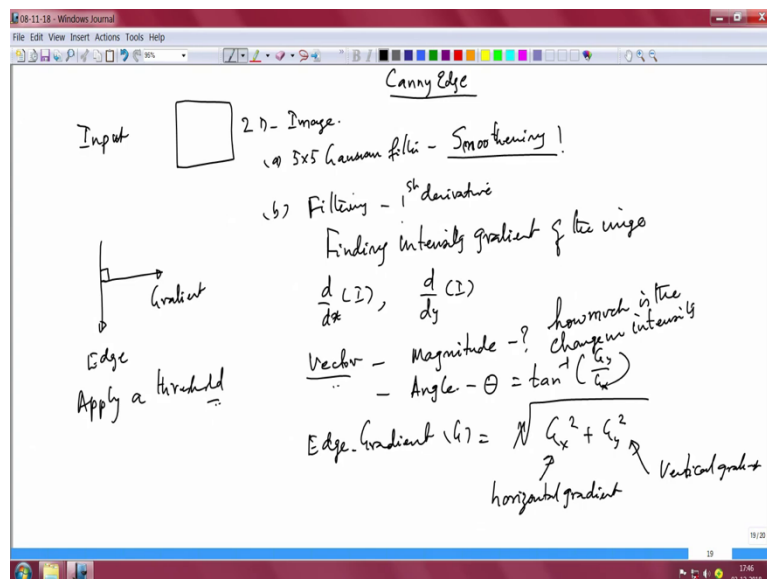 08-11-18 - Windows Journal
File Edit View Insert Actions Tools Help
96%
Canny Edge
Input
2D- Image.
(a) 5x5 Gaussian filter - Smoothening!
(b) Filtering - 1st derivative
Finding intensity gradient of the image
d/dx (I), d/dy (I)
Gradient
Edge
Apply a threshold
Vector - Magnitude - ? how much is the change in intensity
- Angle - θ = tan⁻¹ (Gy/Gx)
Edge-Gradient (G) = √Gx² + Gy²
horizontal gradient
Vertical gradient
19/20
19
17:46